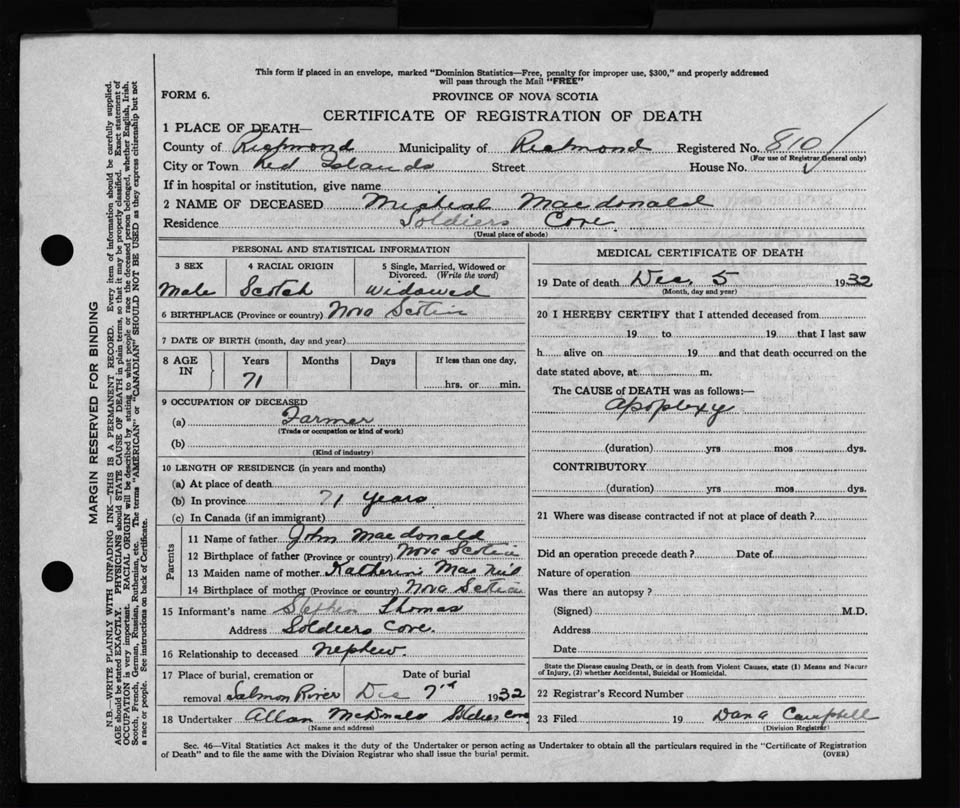 This form if placed in an envelope, marked "Dominion Statistics—Free, penalty for improper use, $300," and properly addressed
will pass through the Mail "FREE"
FORM 6.
PROVINCE OF NOVA SCOTIA
CERTIFICATE OF REGISTRATION OF DEATH
1 PLACE OF DEATH—
County of Richmond Municipality of Richmond Registered No. 810
(For use of Registrar General only)
City or Town Red Islands Street House No.
If in hospital or institution, give name
2 NAME OF DECEASED Micheal Macdonald
Residence Soldiers Cove
(Usual place of abode)
PERSONAL AND STATISTICAL INFORMATION
3 SEX 4 RACIAL ORIGIN 5 Single, Married, Widowed or
Divorced. (Write the word)
Male Scotch Widowed
6 BIRTHPLACE (Province or country) Nova Scotia
7 DATE OF BIRTH (month, day and year)
8 AGE IN Years Months Days If less than one day,
71 hrs. or min.
9 OCCUPATION OF DECEASED
(a) Farmer
(Trade or occupation or kind of work)
(b)
(Kind of industry)
10 LENGTH OF RESIDENCE (in years and months)
(a) At place of death
(b) In province 71 years
(c) In Canada (if an immigrant)
Parents
11 Name of father John Macdonald
12 Birthplace of father (Province or country) Nova Scotia
13 Maiden name of mother Katherine Mac Neil
14 Birthplace of mother (Province or country) Nova Scotia
15 Informant's name Stephen Thomas
Address Soldiers Cove.
16 Relationship to deceased nephew.
17 Place of burial, cremation or Date of burial
removal Salmon River Dec 7th 1932
18 Undertaker Allan McDonald Soldiers Cove
(Name and address)
MEDICAL CERTIFICATE OF DEATH
19 Date of death Dec, 5 1932
(Month, day and year)
20 I HEREBY CERTIFY that I attended deceased from
19 to 19 that I last saw
h alive on 19 and that death occurred on the
date stated above, at m.
The CAUSE of DEATH was as follows:—
Apoplexy
(duration) yrs mos dys.
CONTRIBUTORY
(duration) yrs mos dys.
21 Where was disease contracted if not at place of death?
Did an operation precede death? Date of
Nature of operation
Was there an autopsy?
(Signed) M.D.
Address
Date
State the Disease causing Death, or in death from Violent Causes, state (1) Means and Nature
of Injury, (2) whether Accidental, Suicidal or Homicidal.
22 Registrar's Record Number
23 Filed 19 Dan A Campbell
(Division Registrar)
Sec. 46—Vital Statistics Act makes it the duty of the Undertaker or person acting as Undertaker to obtain all the particulars required in the "Certificate of Registration
of Death" and to file the same with the Division Registrar who shall issue the burial permit.
(OVER)
MARGIN RESERVED FOR BINDING
N.B.—WRITE PLAINLY WITH UNFADING INK—THIS IS A PERMANENT RECORD. Every item of information should be carefully supplied.
AGE should be stated EXACTLY. PHYSICIANS should STATE CAUSE OF DEATH in plain terms, so that it may be properly classified. Exact statement of
OCCUPATION is very important. RACIAL ORIGIN will be described by stating to what people or race the deceased person belonged, whether English, Irish,
Scotch, French, German, Russian, Ruthenian, etc. The terms "AMERICAN" or "CANADIAN" SHOULD NOT BE USED as they express citizenship but not
a race or people. See instructions on back of Certificate.